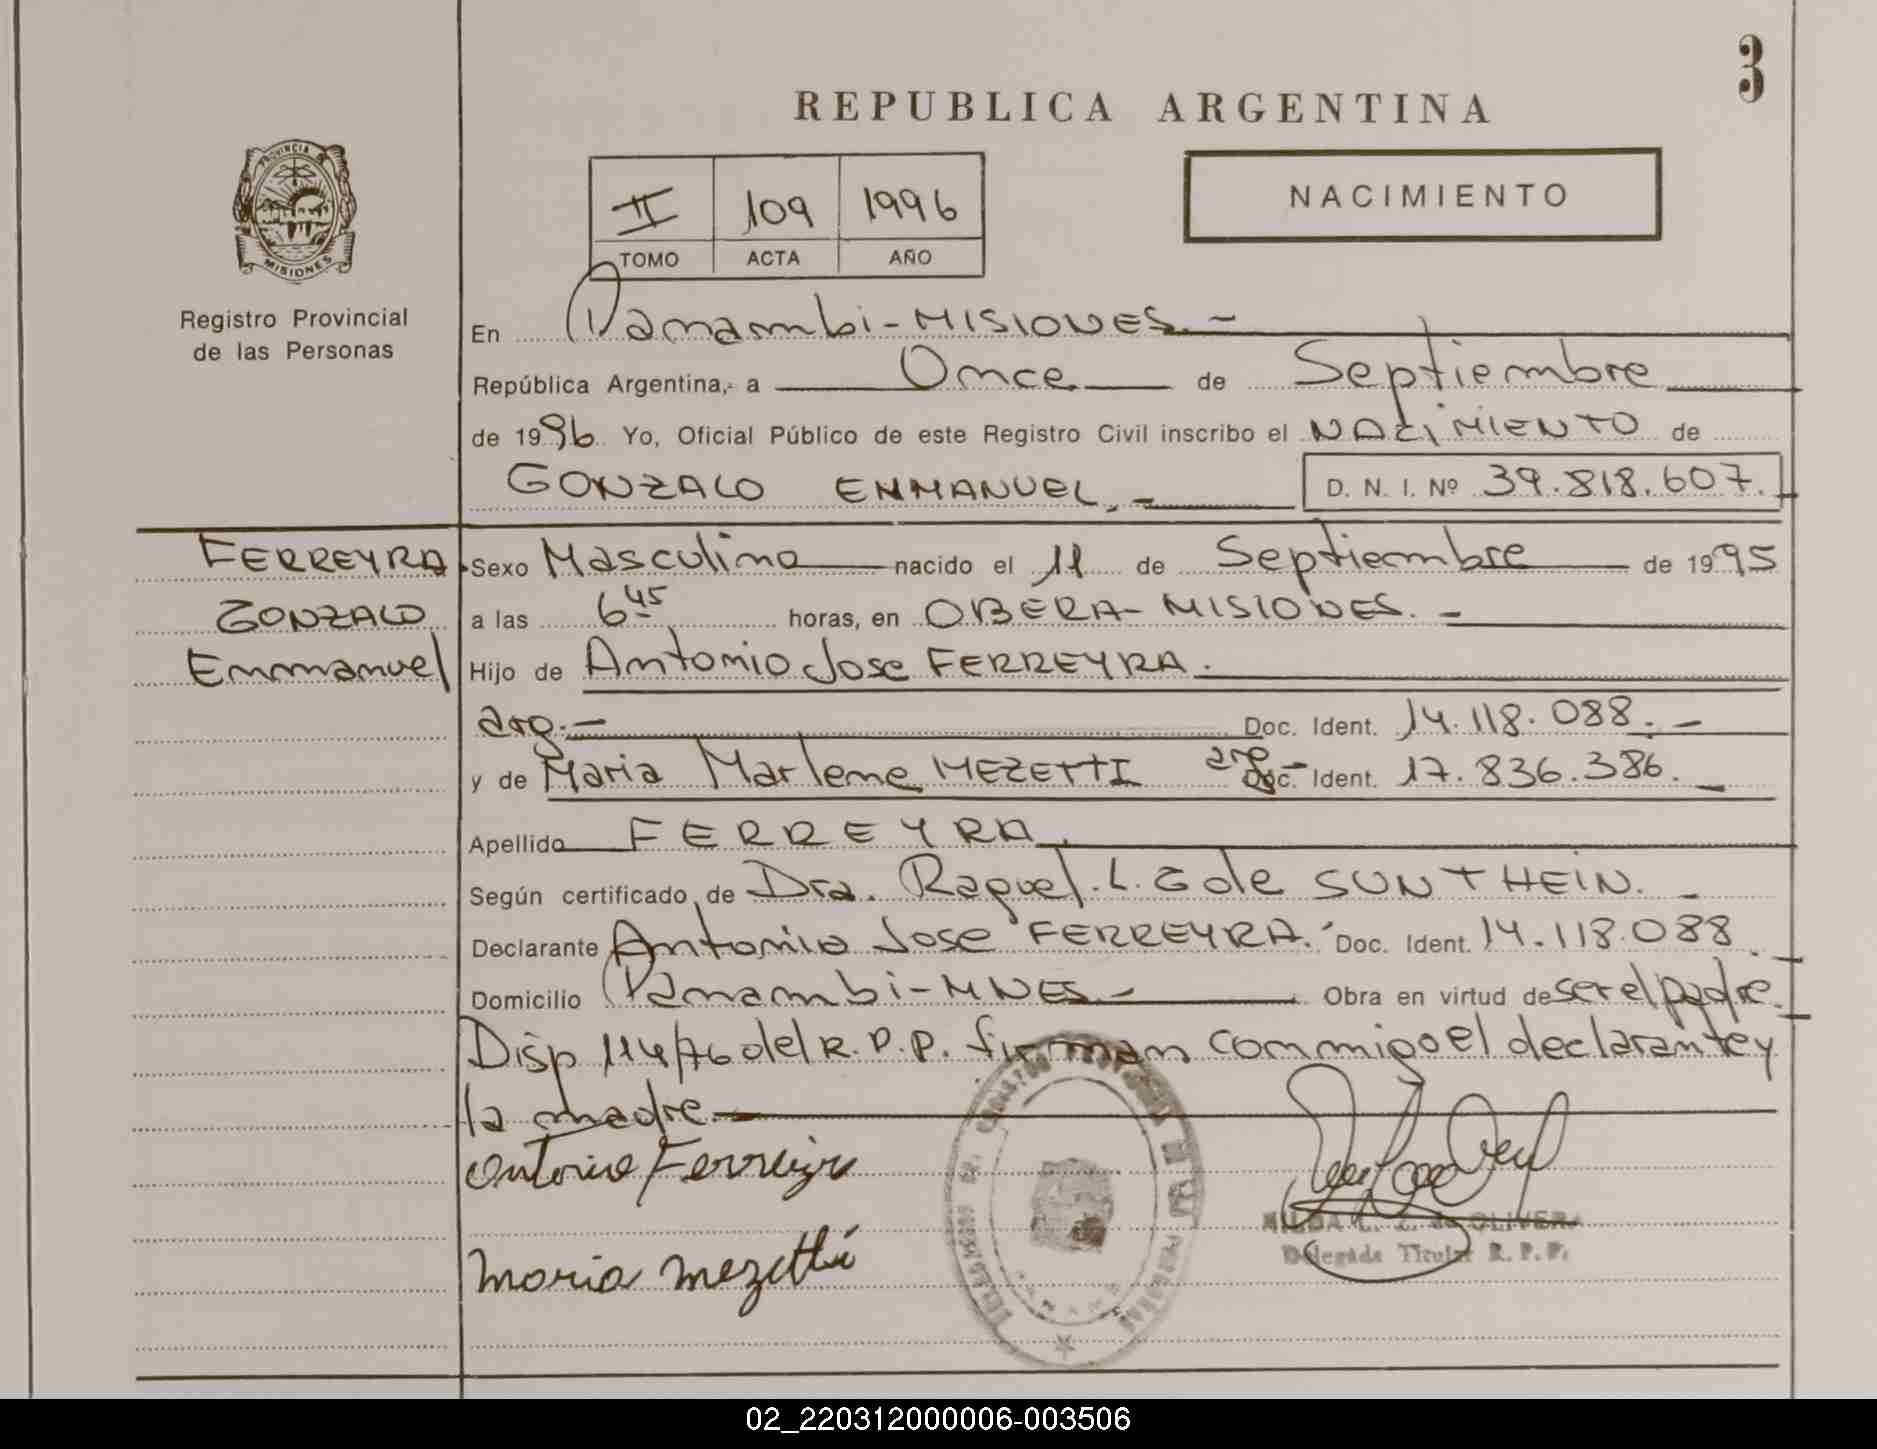 3
REPUBLICA ARGENTINA
PROVINCIA DE
MISIONES
Registro Provincial
de las Personas
II 109 1996
TOMO ACTA AÑO
NACIMIENTO
En Panambi-MISIONES.-
República Argentina, a Once de Septiembre
de 1996 Yo, Oficial Público de este Registro Civil inscribo el NACIMIENTO de
GONZALO EMMANUEL.- D. N. I. Nº 39.818.607.
FERREYRA Sexo Masculino nacido el 11 de Septiembre de 1995
GONZALO a las 6 45 horas, en OBERA-MISIONES.-
Emmanuel Hijo de Antonio Jose FERREYRA.
arg.- Doc. Ident. 14.118.088.-
y de Maria Marlene MEZETTI arg.- Doc. Ident. 17.836.386.-
Apellido FERREYRA.
Según certificado de Dra. Raquel L. G de SUNTHEIN.-
Declarante Antonio Jose FERREYRA. Doc. Ident. 14.118.088
Domicilio Panambi-MNES.- Obra en virtud de ser el padre.
Disp 114/76 del R.P.P. firman conmigo el declarante y
la madre.-
Antonio Ferreira
Maria Mezetti
HILDA L. Z. de OLIVERA
Delegada Titular R. P. P.
02_220312000006-003506